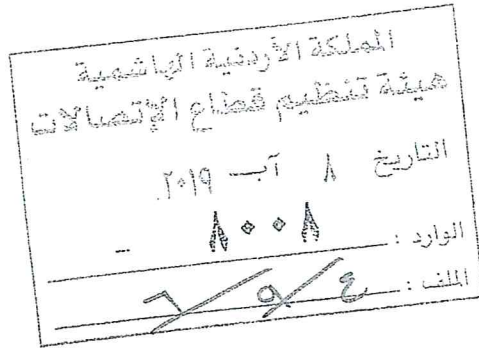 المملكة الأردنية الهاشمية
هيئة تنظيم قطاع الإتصالات
التاريخ ٨ آب ٢٠١٩
الوارد : ٨٠٠٨
الملف : ٦/٩/٤